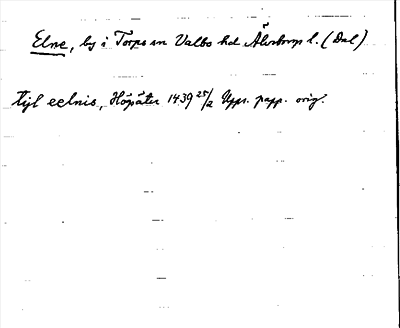 Elne, by i Torps sn Valbo hd Älvsborgs l. (Dal)
til eelnis, Högsäter 1439 25/2 Upps. papp. orig.